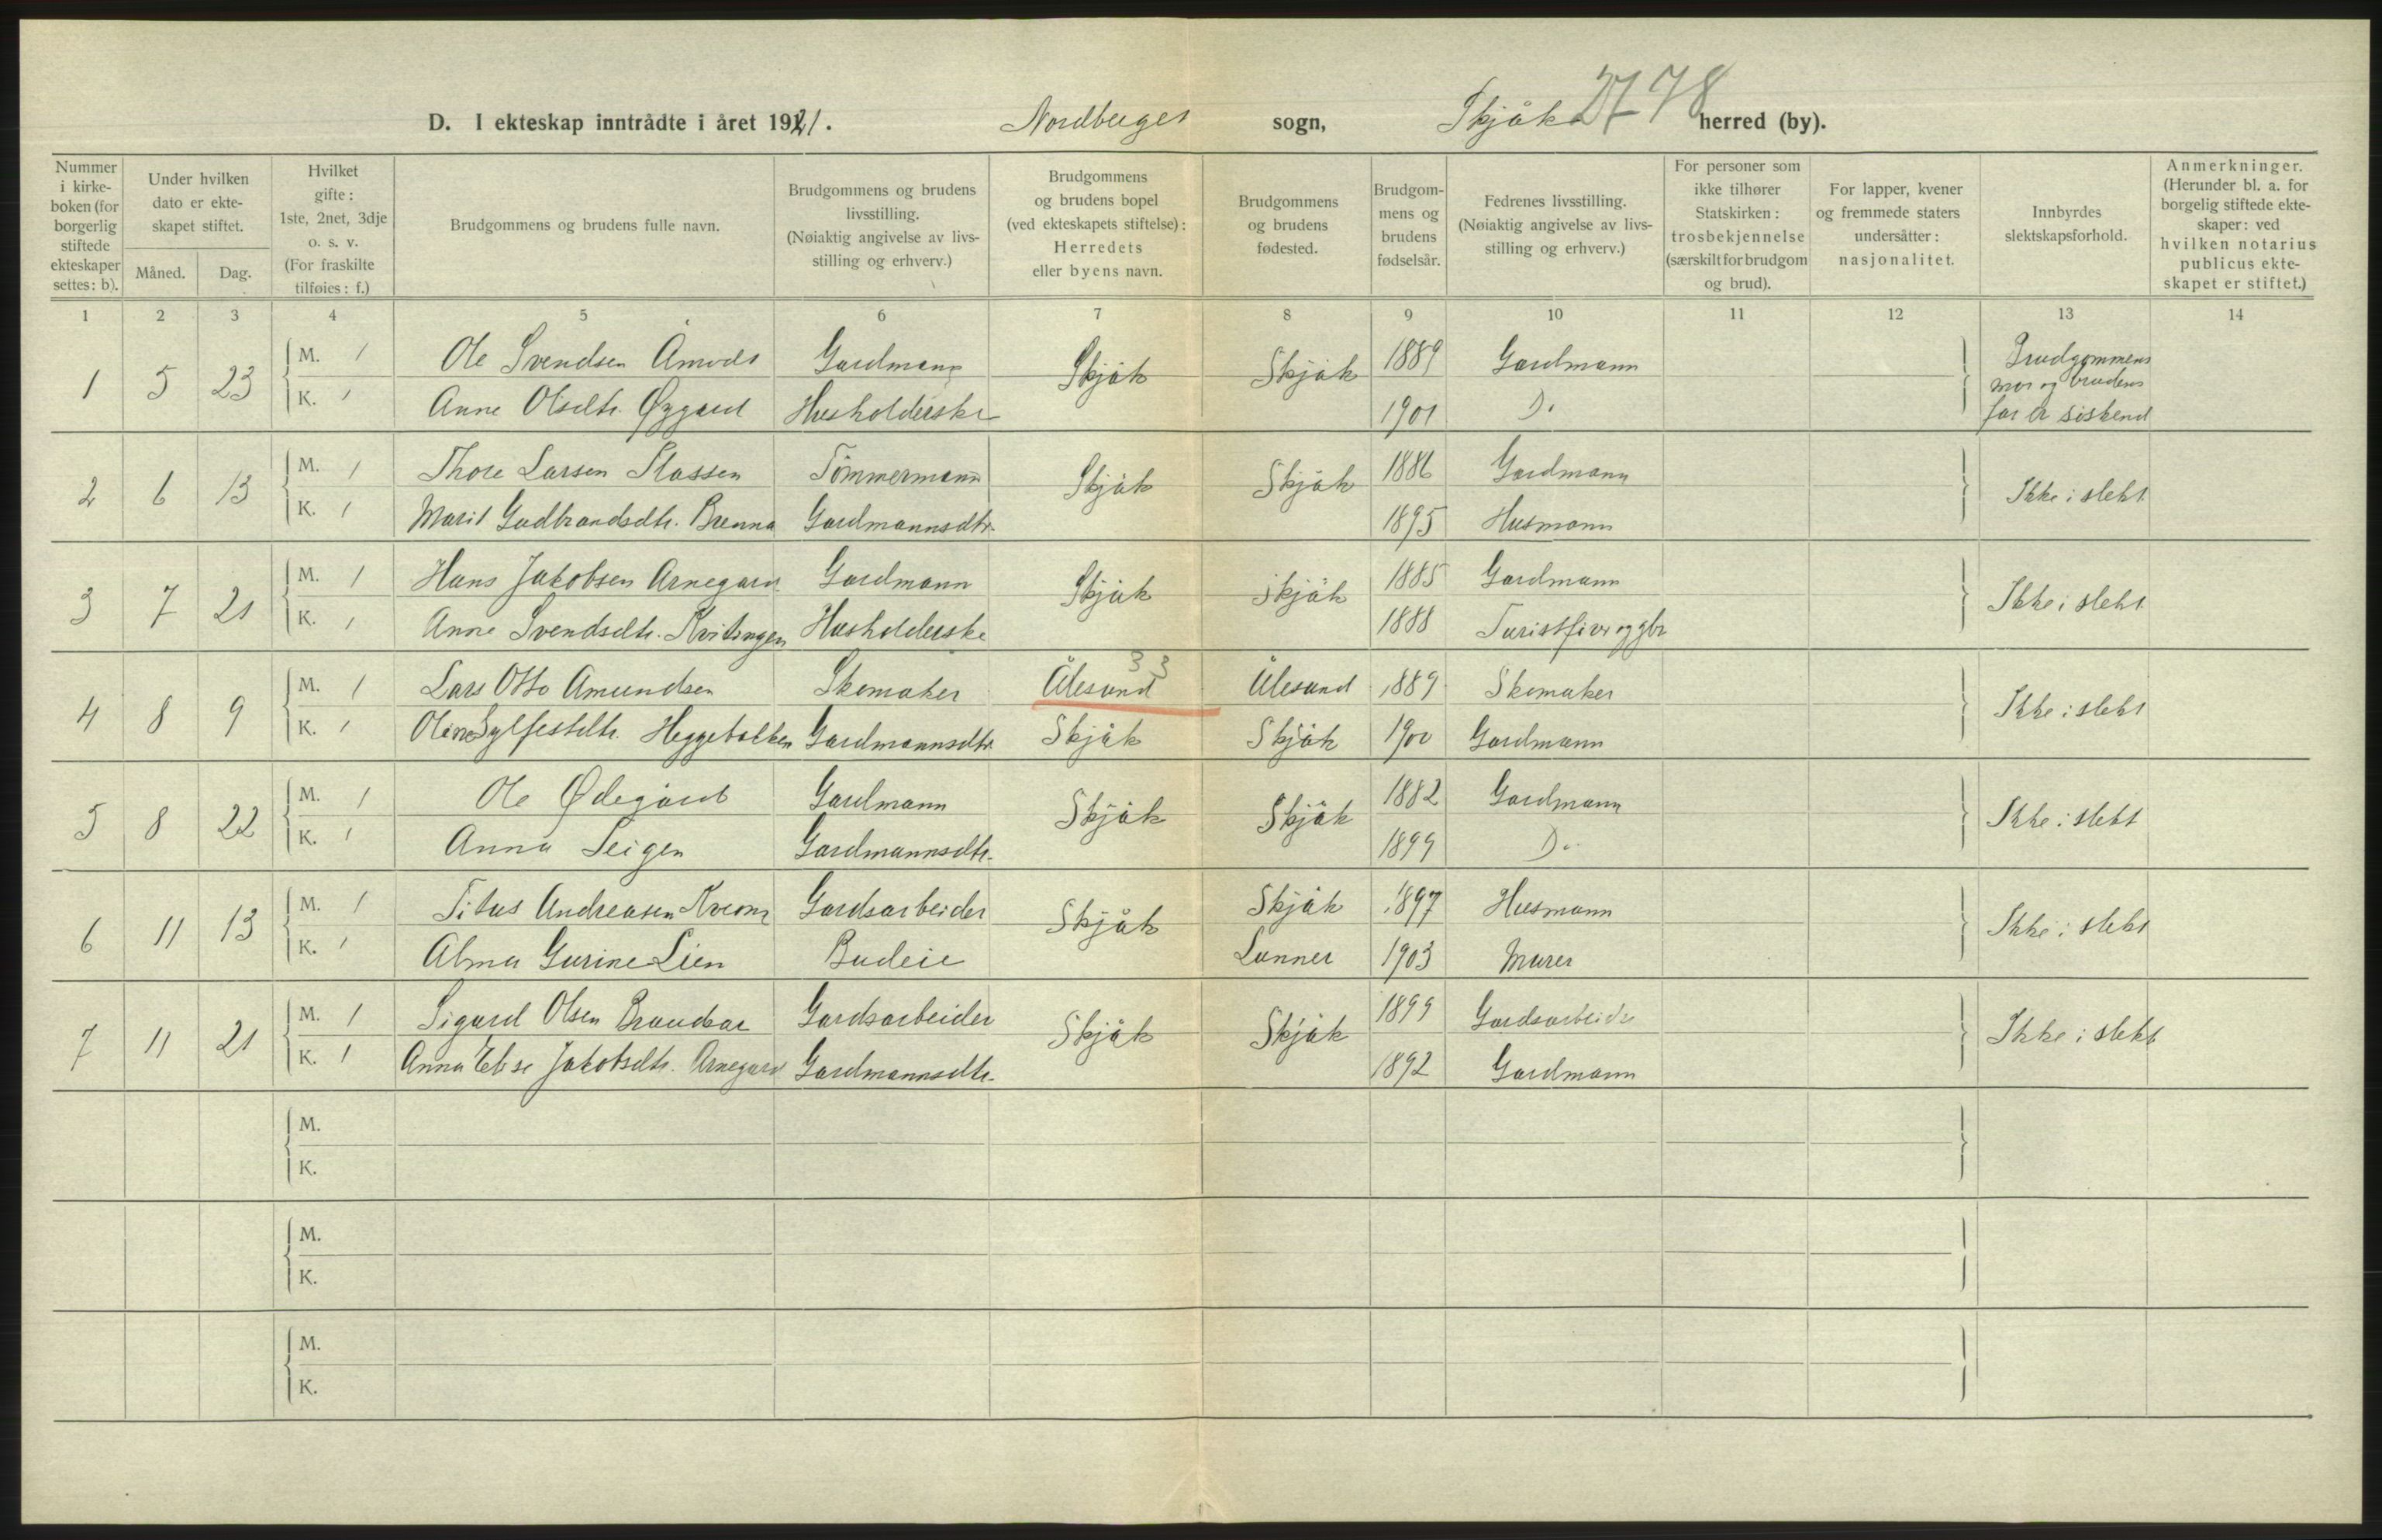 D. I ekteskap inntrådte i året 1921. Nordberges sogn, Skjåk 2778 herred (by).
Nummer i kirkeboken (for borgerlig stiftede ekteskaper settes: b). | Under hvilken dato er ekteskapet stiftet. Måned. Dag. | Hvilket gifte: 1ste, 2net, 3dje o. s. v. (For fraskilte tilføies: f.) | Brudgommens og brudens fulle navn. | Brudgommens og brudens livsstilling. (Nøiaktig angivelse av livsstilling og erhverv.) | Brudgommens og brudens bopel (ved ekteskapets stiftelse): Herredets eller byens navn. | Brudgommens og brudens fødested. | Brudgommens og brudens fødselsår. | Fedrenes livsstilling. (Nøiaktig angivelse av livsstilling og erhverv.) | For personer som ikke tilhører Statskirken: trosbekjennelse (særskilt for brudgom og brud). | For lapper, kvener og fremmede staters undersåtter: nasjonalitet. | Innbyrdes slektskapsforhold. | Anmerkninger. (Herunder bl. a. for borgelig stiftede ekteskaper: ved hvilken notarius publicus ekteskapet er stiftet.)
1 2 3 4 5 6 7 8 9 10 11 12 13 14
1 5 23 M. 1 Ole Svendsen Åmodt Gardmann Skjåk Skjåk 1889 Gardmann Brudgommens mor og brudens far er sískend
K. 1 Anne Olsdtr. Øygard Husholderske 1901 Do
2 6 13 M. 1 Thore Larsen Slassen Tömmermann Skjåk Skjåk 1886 Gardmann Ikke i slekt
K. 1 Marit Gudbrandsdtr. Brenna Gardmannsdtr. 1895 Husmann
3 7 21 M. 1 Hans Jakobsen Arnegard Gardmann Skjåk Skjåk 1885 Gardmann Ikke i slekt
K. 1 Anne Svendsdtr. Kvitingen Husholderske 1888 Turist
4 8 9 M. 1 Lars Otto Amundsen Skomaker Ålesund 33 Ålesund 1889 Skomaker Ikke i slekt
K. 1 Oline Sylfestdtr. Heggebotten Gardmannsdtr. Skjåk Skjåk 1900 Gardmann
5 8 22 M. 1 Ole Ødegård Gardmann Skjåk Skjåk 1882 Gardmann Ikke i slekt
K. 1 Anna Teigen Gardmannsdtr. 1899 Do
6 11 13 M. 1 Titus Andreasen Gardsarbeider Skjåk Skjåk 1897 Husmann Ikke i slekt
K. 1 Alma Gurine Lien Budeie Lunner 1903 Murer
7 11 21 M. 1 Sigurd Olsen Gardsarbeider Skjåk Skjåk 1899 Gardsarbeider Ikke i slekt
K. 1 Anna Elise Jakobsdtr. Arnegard Gardmannsdtr. 1892 Gardmann
M.
K.
M.
K.
M.
K.